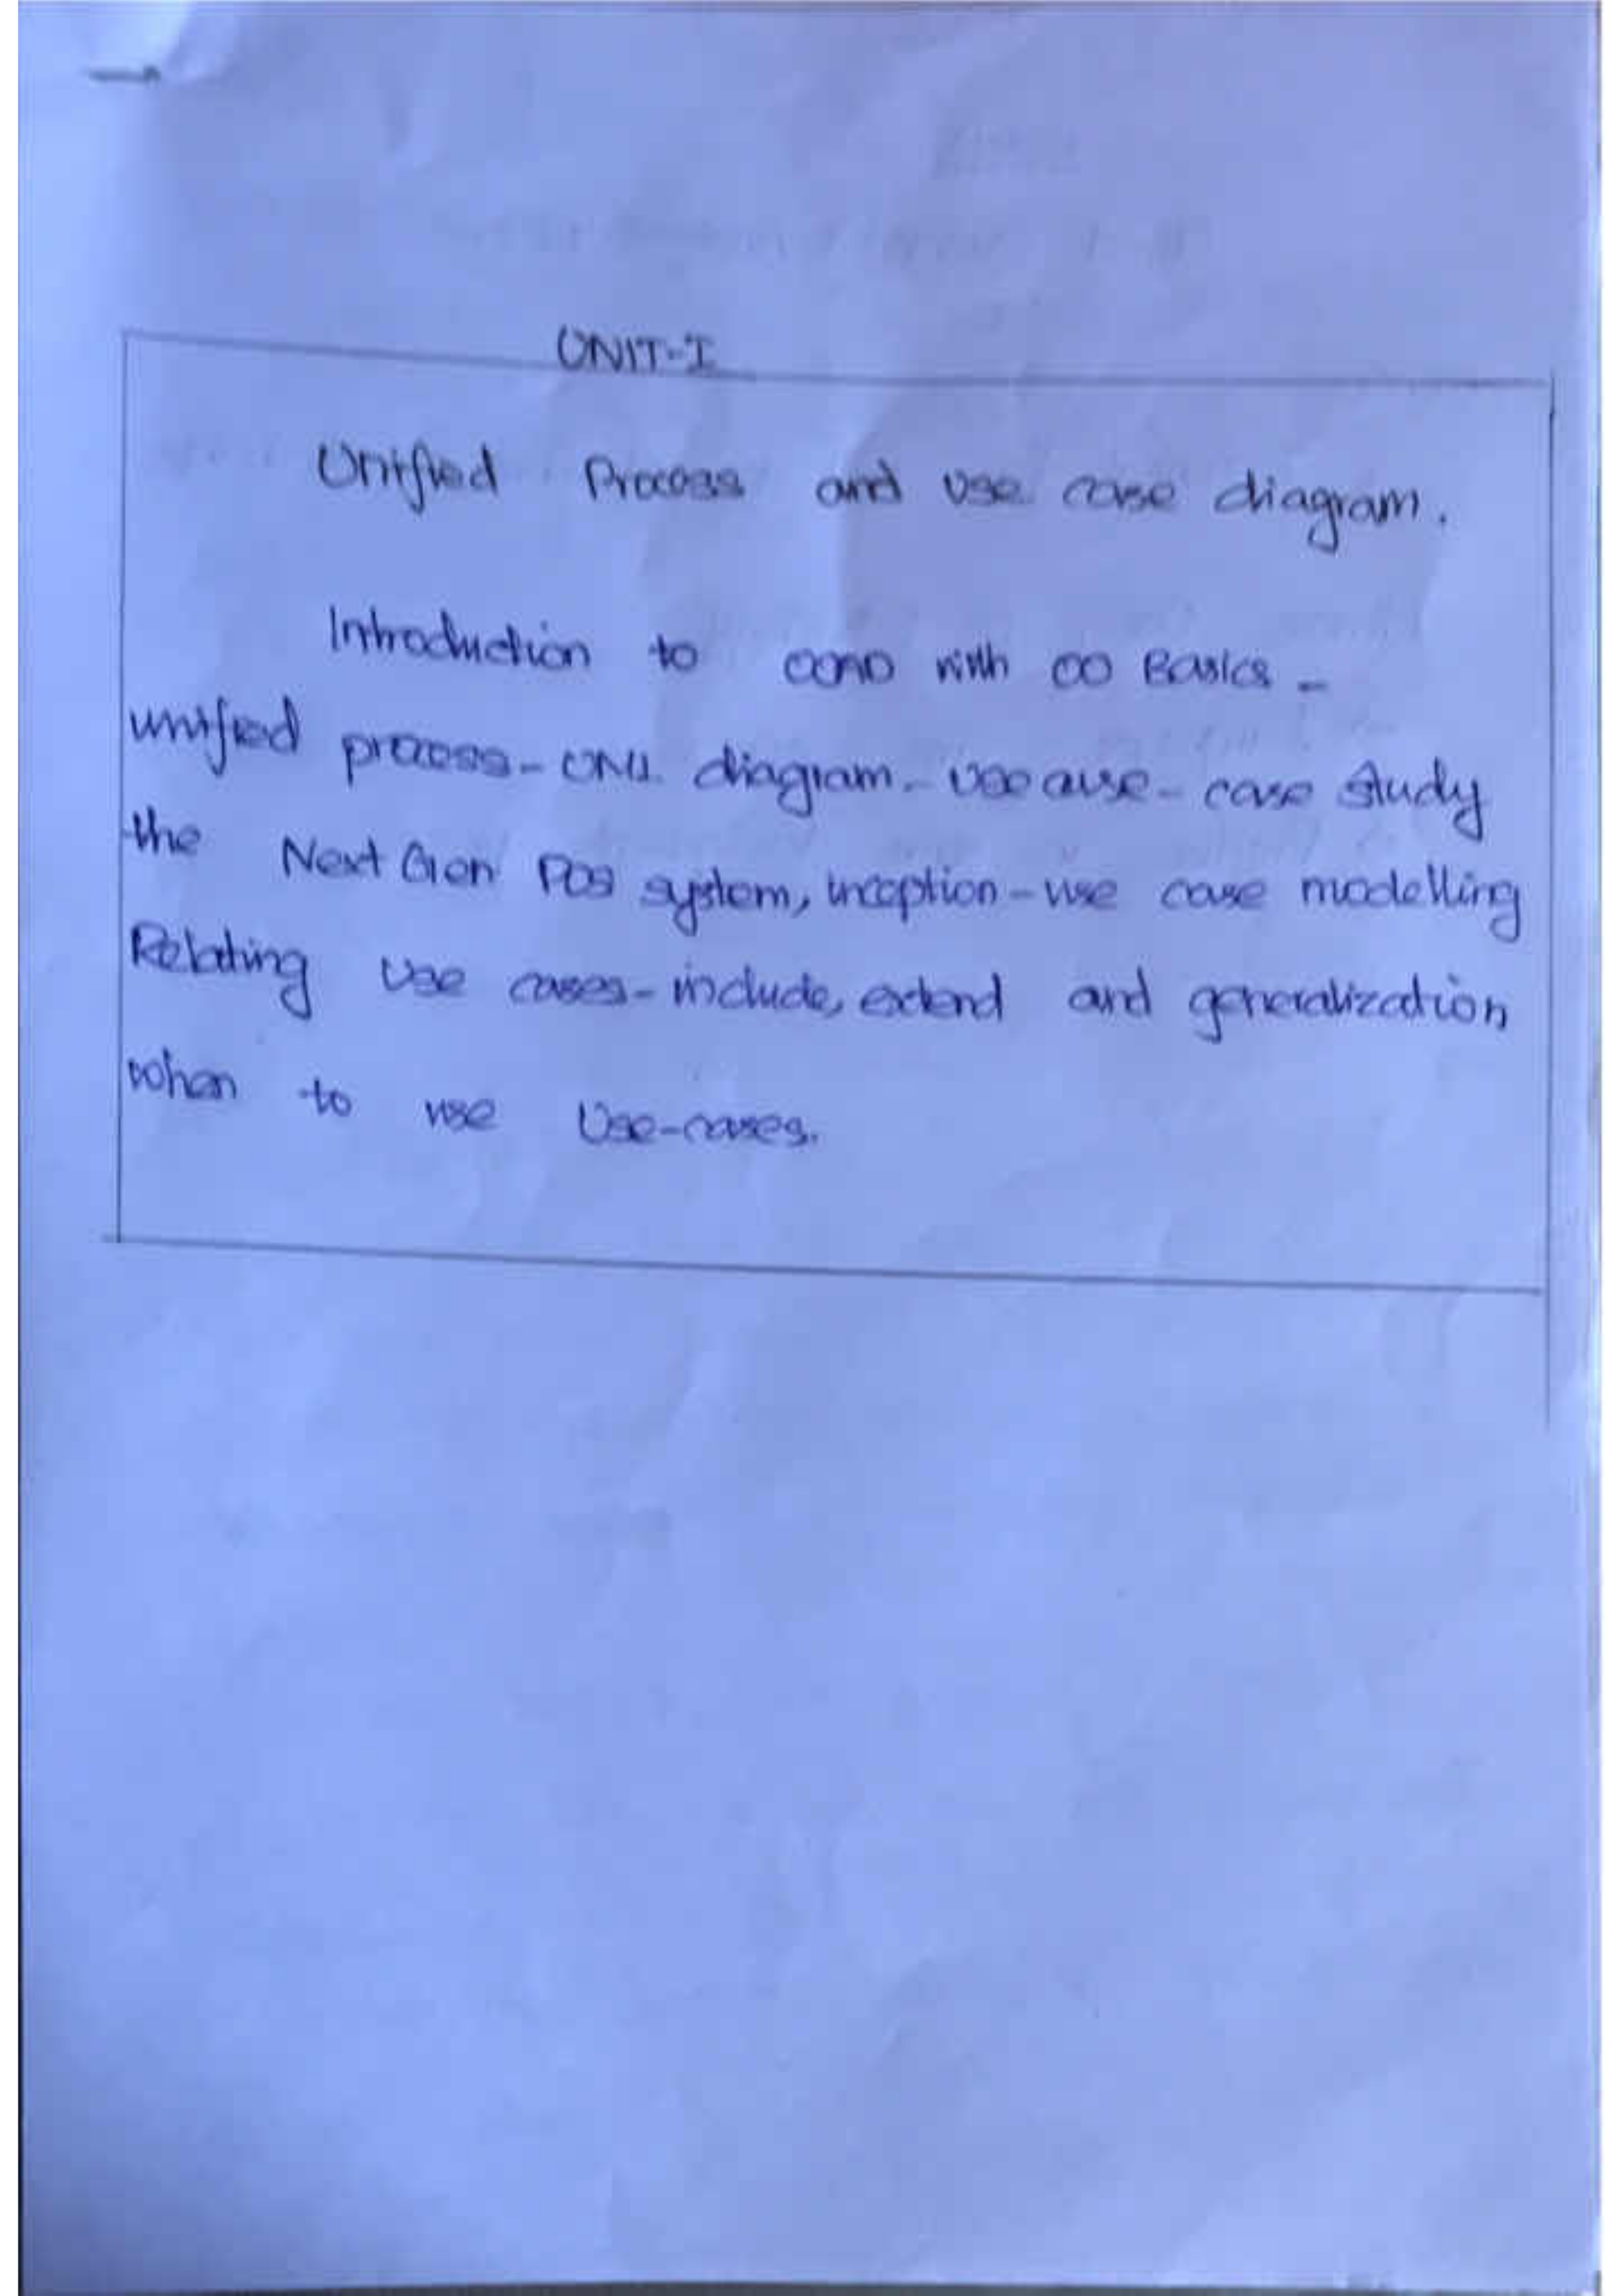 UNIT-I
Unified Process and use case diagram.
Introduction to OOAD with OO Basics -
unified process - UML diagram - Use case - case study
the Next Gen POS system, inception - use case modelling
Relating Use cases - include, extend and generalization
when to use Use-cases.